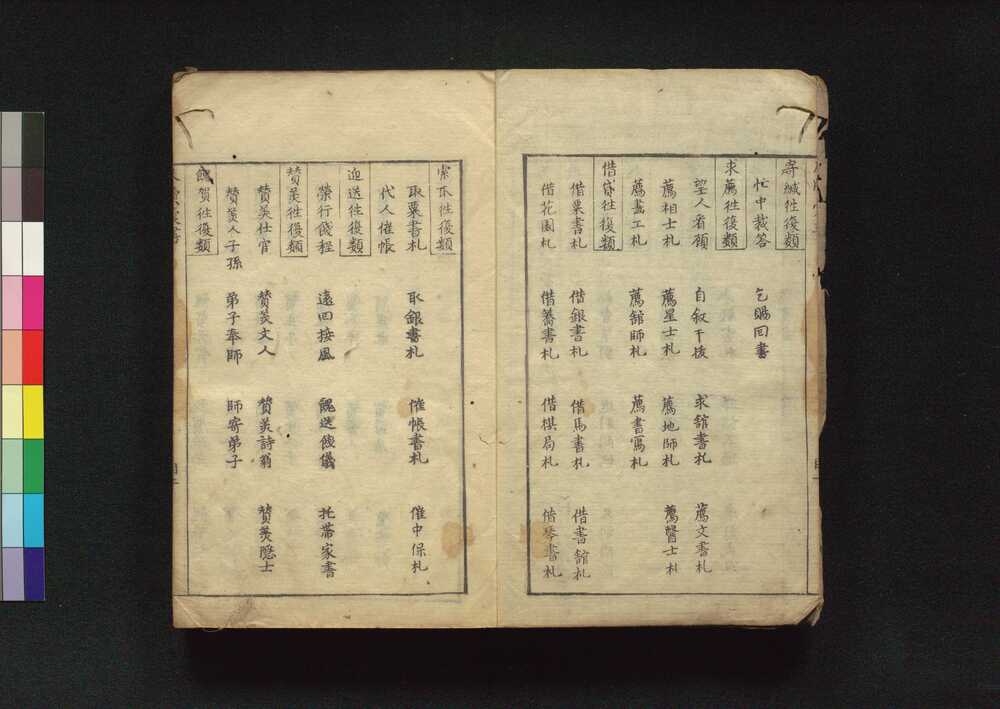 寄緘往復類
忙中裁答 乞賜回書
求薦往復類
望人看顧 自叙干援 求舘書札 薦文書札
薦相士札 薦星士札 薦地師札 薦醫士札
薦畫工札 薦舘師札 薦書寫札
借貸往復類
借粟書札 借銀書札 借馬書札 借書舘札
借花園札 借蓄書札 借棋局札 借琴書札
索不往復類
取粟書札 取銀書札 催帳書札 催中保札
代人催帳
迎送往復類
榮行餞程 遠回接風 餽送餞儀 托帶家書
賛羙往復類
賛羙仕官 賛羙文人 賛羙詩翁 賛羙隐士
賛羙人子孫 弟子奉師 師寄弟子
餽贺往復類